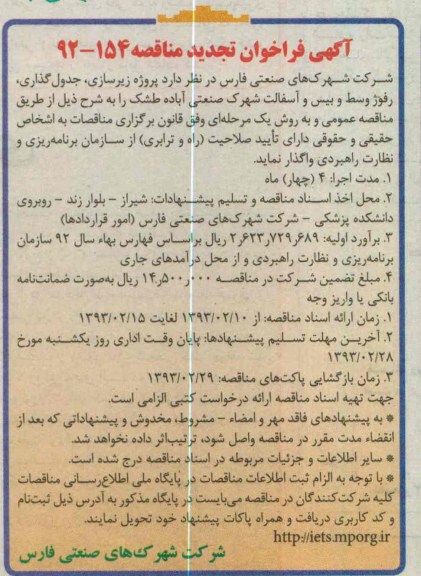 آگهی فراخوان تجدید مناقصه ۱۵۴-۹۲
شــرکت شــهرک‌های صنعتی فارس در نظر دارد پروژه زیرسازی، جدول‌گذاری،
رفوژ وسط و بیس و آسفالت شهرک صنعتی آباده طشک را به شرح ذیل از طریق
مناقصه عمومی و به روش یک مرحله‌ای وفق قانون برگزاری مناقصات به اشخاص
حقیقی و حقوقی دارای تأیید صلاحیت (راه و ترابری) از ســازمان برنامه‌ریزی و
نظارت راهبردی واگذار نماید.
۱. مدت اجرا: ۴ (چهار) ماه
۲. محل اخذ اســناد مناقصه و تسلیم پیشــنهادات: شیراز - بلوار زند - روبروی
دانشکده پزشکی - شرکت شهرک‌های صنعتی فارس (امور قراردادها)
۳. برآورد اولیه: ۲٫۶۲۳٫۷۲۹٫۶۸۹ ریال براســاس فهارس بهاء سال ۹۲ سازمان
برنامه‌ریزی و نظارت راهبردی و از محل درآمدهای جاری
۴. مبلغ تضمین شــرکت در مناقصــه ۱۴٫۵۰۰٫۰۰۰ ریال به‌صورت ضمانت‌نامه
بانکی یا واریز وجه
۱. زمان ارائه اسناد مناقصه: از ۱۳۹۳/۰۲/۱۰ لغایت ۱۳۹۳/۰۲/۱۵
۲. آخریــن مهلت تســلیم پیشــنهادها: پایان وقــت اداری روز یکشــنبه مورخ
۱۳۹۳/۰۲/۲۸
۳. زمان بازگشایی پاکت‌های مناقصه: ۱۳۹۳/۰۲/۲۹
جهت تهیه اسناد مناقصه ارائه درخواست کتبی الزامی است.
* به پیشنهادهای فاقد مهر و امضاء - مشروط، مخدوش و پیشنهاداتی که بعد از
انقضاء مدت مقرر در مناقصه واصل شود، ترتیب‌اثر داده نخواهد شد.
* سایر اطلاعات و جزئیات مربوطه در اسناد مناقصه درج شده است.
* با توجه به الزام ثبت اطلاعات مناقصات در پایگاه ملی اطلاع‌رســانی مناقصات
کلیه شرکت‌کنندگان در مناقصه می‌بایست در پایگاه مذکور به آدرس ذیل ثبت‌نام
و کد کاربری دریافت و همراه پاکات پیشنهاد خود تحویل نمایند.
http://iets.mporg.ir
شرکت شهرک‌های صنعتی فارس